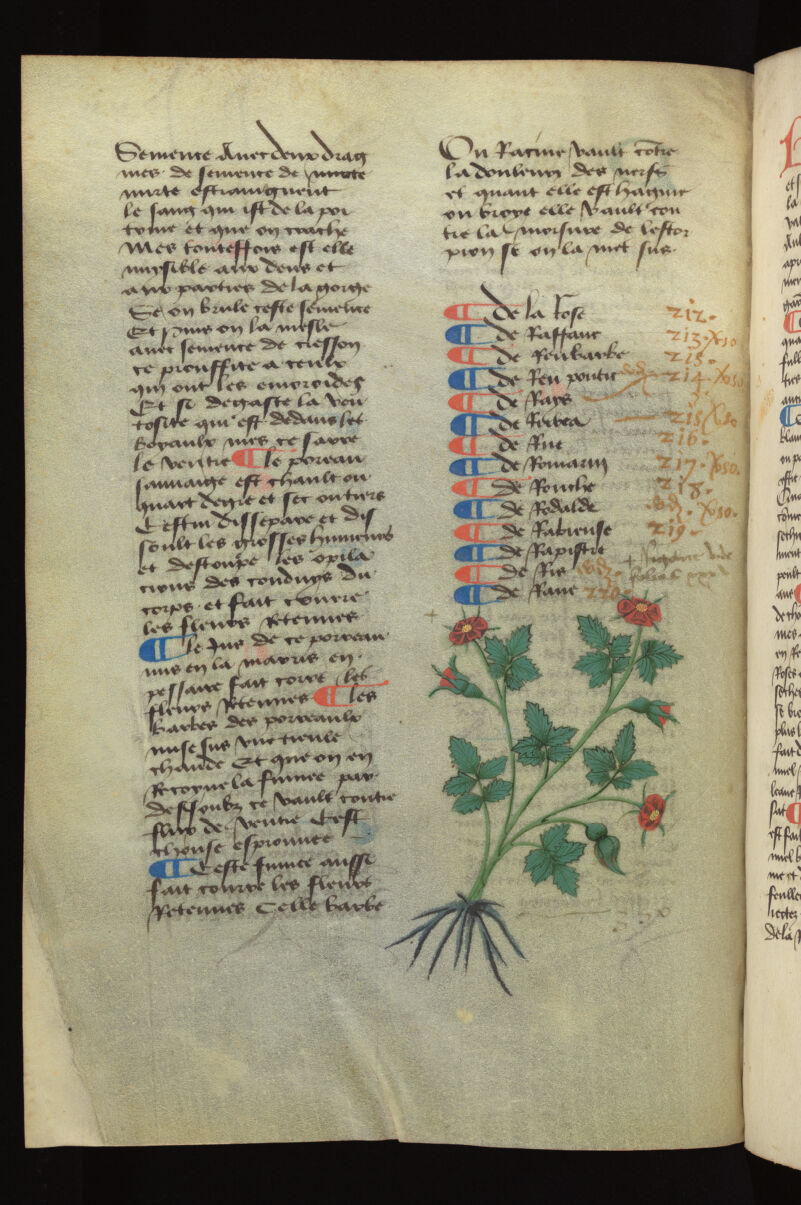 Semence Avec deux drag
mes de semence de
mirte estraingnent
le sang qui ist de la poi
trine et que on crache
Mes touteffois est elle
nuysible aux dens et
aux parties de la gorge
Se on brule ceste semence
Et puis on la mesle
avec semence de cresson
ce prouffite a ceulx
qui ont les emoroides
Et si degaste la ven
tosite qui est dedans les
boyaulx mes ce sarre
le ventre ¶ le poreau
sauvaige est chault ou
quart degre et sec ou tiers
Cestui dissepare et dis
soult les grosses humeurs
et destoupe les opila
cions des conduys du
corps et fait courre
les fleurs Retenues
¶ le Jus de ce porreau
mis en la mairis en
pessaire fait corre les
fleurs Retenues ¶ les
barbes des porreaulx
mise sus une tieule
chaude Et que on en
Recoyve la fumee par
dessoubz ce vault contre
flux de ventre Cest
chouse esprouvee
¶ Ceste fumee aussi
fait courre les fleurs
Retenues Celle barbe
Ou Racine vault contre
la douleurs des nerfs
et quant elle est
on broye elle vault con
tre la morsure de lescor
pion se on la met sus
¶ de la Rose 212.
¶ de Raffane 213.
¶ de Reubarbe 215.
¶ de Reu pontic 214.
¶ de Rays
¶ de 215
¶ de Rue 216.
¶ de Romarin 217.
¶ de Ronche 218.
¶ de Rodalde
¶ de Rabieuse 219.
¶ de Rapistre
¶ de Ris
¶ de Rave 220.